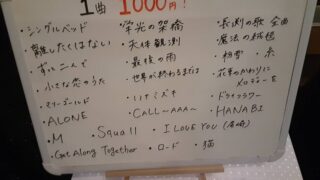 1曲 1000円!
・シングルベッド ・栄光の架橋 ・長渕の歌 全曲
・離したくはない ・天体観測 ・魔法の絨毯
・ずっと二人で ・最後の雨 ・粉雪 ・糸
・小さな恋のうた ・世界が終わるまでは ・花束のかわりにメロディーを
・マリーゴールド ・ハナミズキ ・ドライフラワー
・ALONE ・CALL ~AAA~ ・HANABI
・M ・Squall ・I LOVE YOU (尾崎)
・Get Along Together ・ロード ・猫